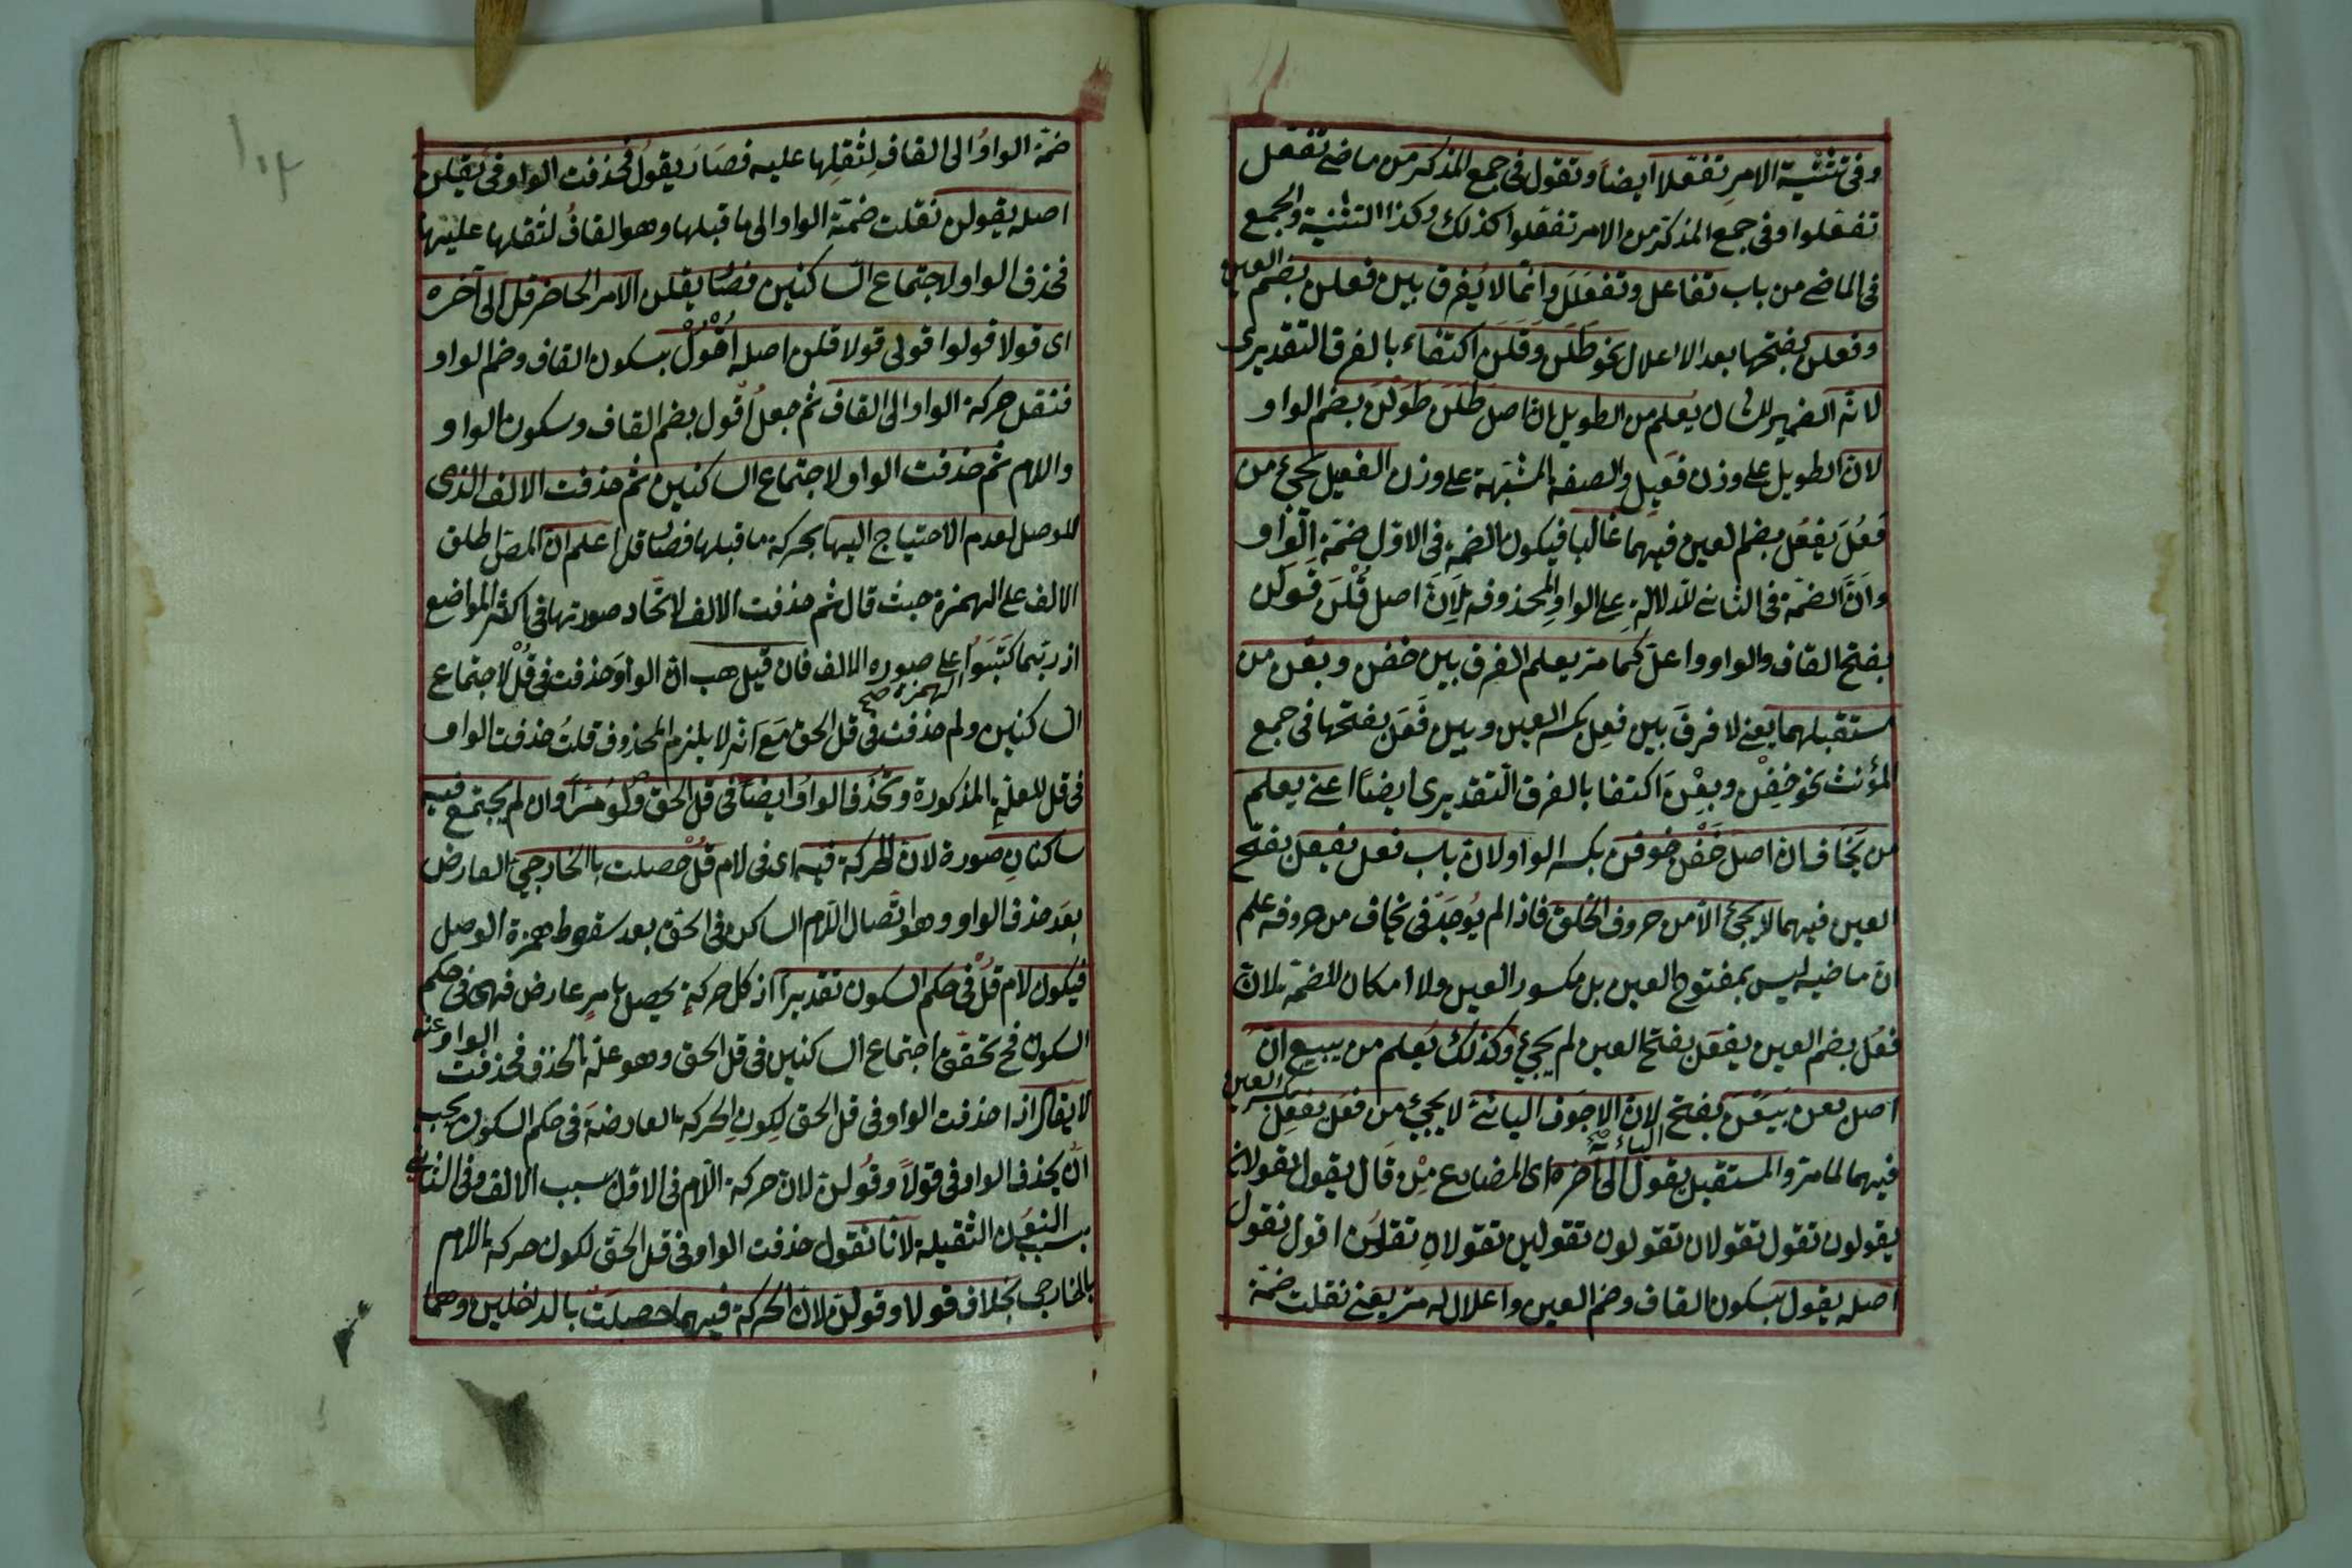 وفى تثنية الامر تفعّلا ايضاً وتقول فى جمع المذكر من ماضى تفعّل
تفعّلوا وفى جمع المذكر من الامر تفعّلوا كذلك وكذا التثنية والجمع
فى الماضى من باب تفاعل وتفعلل وانّما لا يفرق بين فعلن بضم العين
وفعلن بفتحها بعد الاعلال نحو طلن وقلن اكتفاء بالفرق التقديرى
لانّه الضمير للشان يُعلم من الطويل ان اصل طلن طولن بضم الواو
لان الطويل على وزن فعيل والصفة المشبّهة على وزن الفعيل يجئ من
فعُل يفعُل بضم العين فيهما غالبا فيكون الضمة فى الاول ضمة الواو
وانّ الضمّة فى الثانى للدلالة على الواو المحذوفة لان اصل قلن قولن
بفتح القاف والواو واعلّ كما مرّ يعلم الفرق بين خفن وبعن من
مستقبلهما يعنى لا فرق بين فعِل بكسر العين وبين فعَل بفتحها فى جمع
المؤنث نحو خفن وبعن اكتفا بالفرق التقديرى ايضاً اعنى يعلم
من يخاف ان اصل خفن خوفن بكسر الواو لان باب فعل يفعل بفتح
العين فيهما لا يجئ الّا من حروف الحلق فاذا لم يُوجد فى يخاف من حروفه علم
ان ماضيه ليس بمفتوح العين بل مكسور العين ولا امكان للضمّة لان
فعُل بضم العين يفعَل بفتح العين لم يجئ وكذلك يُعلم من يبيع انّ
اصل بعن بيعن بفتح الياء لان الاجوف اليائىّ لا يجئ من فعل يفعل بكسر العين
فيهما لما مرّ والمستقبل يقول الى آخره اى المضارع من قال يقول يقولان
يقولون تقول تقولان تقولون تقولين تقولان تقلن اقول نقول
اصله يقول بسكون القاف وضم العين واعلاله مرّ يعنى نقلت ضمّة
ضمّة الواو الى القاف لثقلها عليه فصار يقول فحذفت الواو فى يقلن
اصله يقولن نقلت ضمّة الواو الى ما قبلها وهو القاف لثقلها عليها
فحذف الواو لاجتماع الساكنين فصار يقلن الامر الحاضر قل الى آخره
اى قولا قولوا قولى قولا قلن اصله اُقْوُلْ بسكون القاف وضم الواو
فنقل حركة الواو الى القاف ثم جعل اقول بضم القاف وسكون الواو
واللام ثم حذفت الواو لاجتماع الساكنين ثم حذفت الالف الذى
للوصل لعدم الاحتياج اليها بحركة ما قبلها فصار قل اعلم ان المصّ اطلق
الالف على الهمزة حيث قال ثم حذفت الالف لاتّحاد صورتها فى اكثر المواضع
اذ ربّما كتبوا على صورة الالف فان قيل هب ان الواو حذفت فى قُلْ لاجتماع
الساكنين ولم حذفت الهمزة صح فى قل الحق مع انّه لا يلزم المحذوف قلت حذفت الواو
فى قل للعلة المذكورة وتحذف الواو ايضاً فى قل الحق وان لم يجتمع فيه
ساكنان صورة لان الحركة فيه اى فى لام قُلْ حصلت بالخارجى العارض
بعد حذف الواو وهو اتّصال اللّام الساكن فى الحق بعد سقوط همزة الوصل
فيكون لام قل فى حكم السكون تقديراً اذ كل حركة يحصل بامر عارض فهى فى حكم
السكون فح تحقّق اجتماع الساكنين فى قل الحق وهو علّة الحذف فحذفت الواو عنه
لا يقال اذا حذفت الواو فى قل الحق لكون الحركة العارضة فى حكم السكون يجب
ان يحذف الواو فى قولاً وقولن لان حركة اللّام فى الاول بسبب الالف وفى الثانى
بسبب النون الثقيلة لانا نقول حذفت الواو فى قل الحق لكون حركة اللام
بالخارجى بخلاف قولا وقولن لان الحركة فيهما حصلت بالداخلين وهما